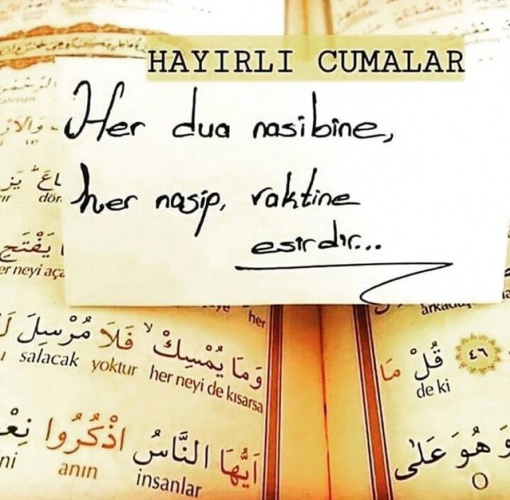 HAYIRLI CUMALAR
Her dua nasibine,
her nasip, vaktine
esirdir...
her
وَمَا يُمْسِكْ فَلَا مُرْسِلَ
salacak yoktur her neyi de kısarsa
اَيُّهَا النَّاسُ اذْكُرُوا
anın insanlar
قُلْ مَا
de ki
٤٦
وَهُوَ عَلٰى
O